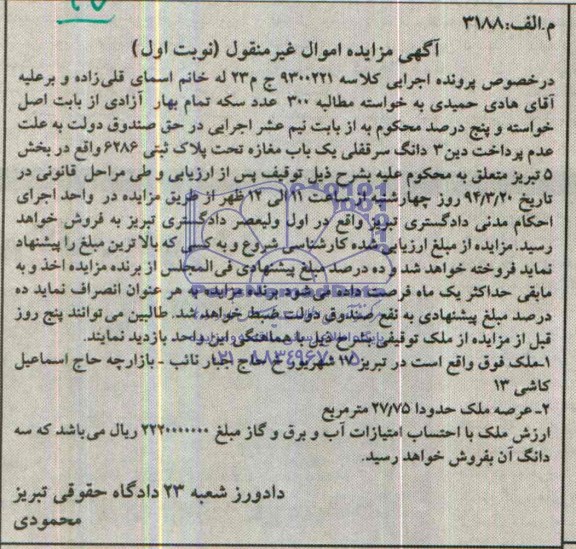 م.الف:۳۱۸۸
آگهی مزایده اموال غیرمنقول (نوبت اول)
درخصوص پرونده اجرایی کلاسه ۹۳۰۰۲۲۱ ج م۲۳ له خانم اسمای قلی‌زاده و برعلیه
آقای هادی حمیدی به خواسته مطالبه ۳۰۰ عدد سکه تمام بهار آزادی از بابت اصل
خواسته و پنج درصد محکوم به از بابت نیم عشر اجرایی در حق صندوق دولت به علت
عدم پرداخت دین۳ دانگ سرقفلی یک باب مغازه تحت پلاک ثبتی ۶۲۸۶ واقع در بخش
۵ تبریز متعلق به محکوم علیه بشرح ذیل توقیف پس از ارزیابی و طی مراحل قانونی در
تاریخ ۹۴/۳/۲۰ روز چهارشنبه از ساعت ۱۱ الی ۱۲ ظهر از طریق مزایده در واحد اجرای
احکام مدنی دادگستری تبریز واقع در اول ولیعصر دادگستری تبریز به فروش خواهد
رسید. مزایده از مبلغ ارزیابی شده کارشناسی شروع و به کسی که بالاترین مبلغ را پیشنهاد
نماید فروخته خواهد شد و ده درصد مبلغ پیشنهادی فی‌المجلس از برنده مزایده اخذ و به
مابقی حداکثر یک ماه فرصت داده می‌شود برنده مزایده به هر عنوان انصراف نماید ده
درصد مبلغ پیشنهادی به نفع صندوق دولت ضبط خواهد شد. طالبین می‌توانند پنج روز
قبل از مزایده از ملک توقیفی بشرح ذیل با هماهنگی این واحد بازدید نمایند.
۱-ملک فوق واقع است در تبریز ۱۷ شهریور خ حاج جبار نائب - بازارچه حاج اسماعیل
کاشی ۱۳
۲- عرصه ملک حدودا ۲۷/۷۵ مترمربع
ارزش ملک با احتساب امتیازات آب و برق و گاز مبلغ ۲۲۲۰۰۰۰۰۰۰ ریال می‌باشد که سه
دانگ آن بفروش خواهد رسید.
دادورز شعبه ۲۳ دادگاه حقوقی تبریز
محمودی